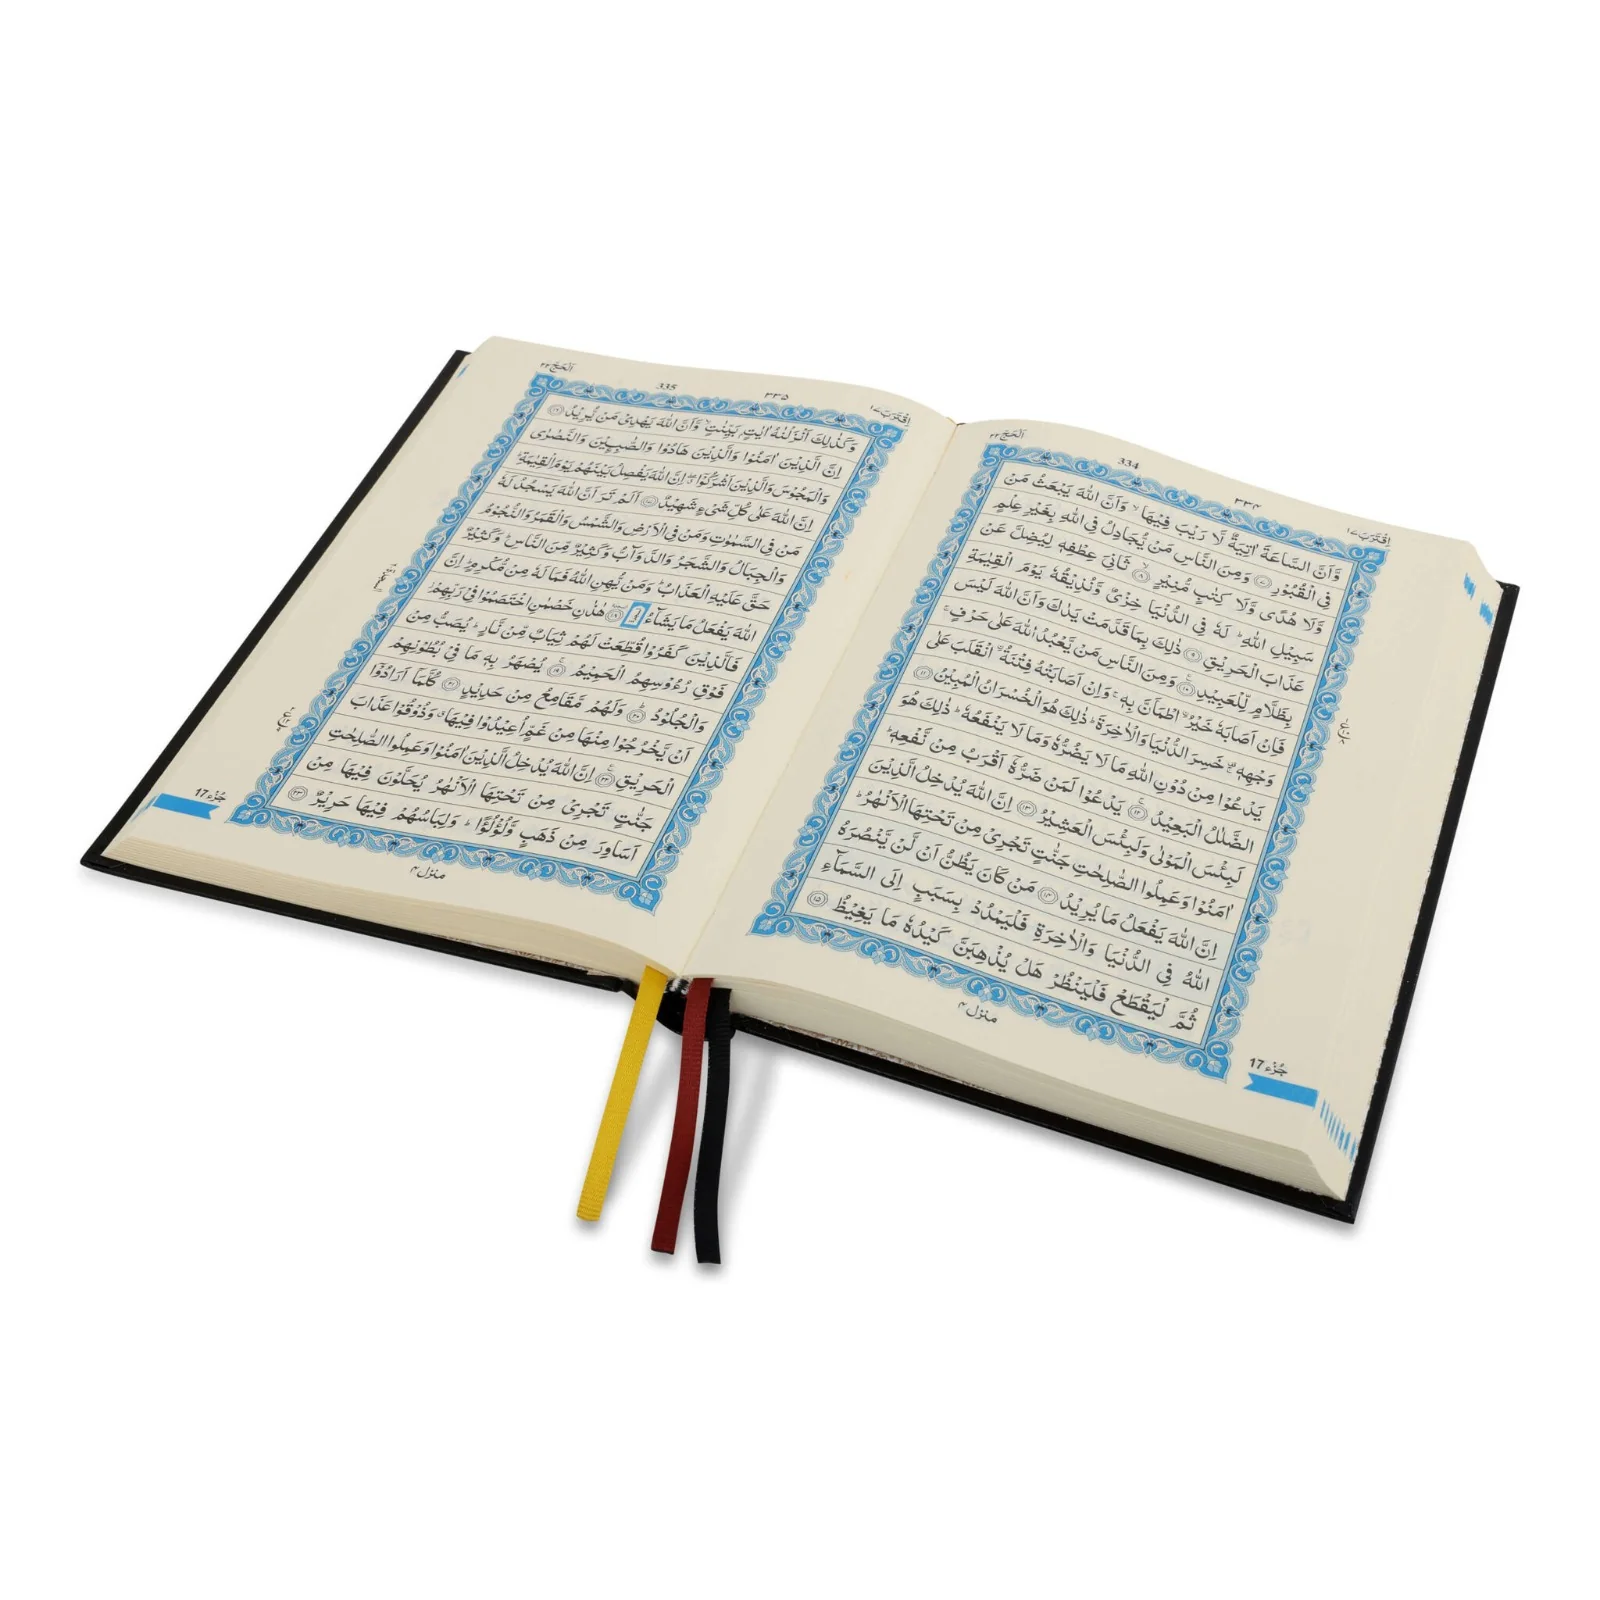 اَلْحَجّ ٢٢
334
٣٣۴
اِقْتَرَبَ ١٧
وَّاَنَّ السَّاعَةَ اٰتِيَةٌ لَّا رَيْبَ فِيْهَا ۙ وَاَنَّ اللّٰهَ يَبْعَثُ مَنْ
فِي الْقُبُوْرِ ۝٧ وَمِنَ النَّاسِ مَنْ يُّجَادِلُ فِي اللّٰهِ بِغَيْرِ عِلْمٍ
وَّلَا هُدًى وَّلَا كِتٰبٍ مُّنِيْرٍ ۝٨ۙ ثَانِيَ عِطْفِهٖ لِيُضِلَّ عَنْ
سَبِيْلِ اللّٰهِ ؕ لَهٗ فِي الدُّنْيَا خِزْىٌ وَّنُذِيْقُهٗ يَوْمَ الْقِيٰمَةِ
عَذَابَ الْحَرِيْقِ ۝٩ ذٰلِكَ بِمَا قَدَّمَتْ يَدٰكَ وَاَنَّ اللّٰهَ لَيْسَ
بِظَلَّامٍ لِّلْعَبِيْدِ ۝١٠ وَمِنَ النَّاسِ مَنْ يَّعْبُدُ اللّٰهَ عَلٰى حَرْفٍ ۚ
فَاِنْ اَصَابَهٗ خَيْرُ ۨاطْمَاَنَّ بِهٖ ۚ وَاِنْ اَصَابَتْهُ فِتْنَةُ ۨانْقَلَبَ عَلٰى
وَجْهِهٖ ۚ خَسِرَ الدُّنْيَا وَالْاٰخِرَةَ ؕ ذٰلِكَ هُوَ الْخُسْرَانُ الْمُبِيْنُ ۝١١
يَدْعُوْا مِنْ دُوْنِ اللّٰهِ مَا لَا يَضُرُّهٗ وَمَا لَا يَنْفَعُهٗ ؕ ذٰلِكَ هُوَ
الضَّلٰلُ الْبَعِيْدُ ۝١٢ۚ يَدْعُوْا لَمَنْ ضَرُّهٗۤ اَقْرَبُ مِنْ نَّفْعِهٖ ؕ
لَبِئْسَ الْمَوْلٰى وَلَبِئْسَ الْعَشِيْرُ ۝١٣ اِنَّ اللّٰهَ يُدْخِلُ الَّذِيْنَ
اٰمَنُوْا وَعَمِلُوا الصّٰلِحٰتِ جَنّٰتٍ تَجْرِيْ مِنْ تَحْتِهَا الْاَنْهٰرُ ؕ
اِنَّ اللّٰهَ يَفْعَلُ مَا يُرِيْدُ ۝١٤ مَنْ كَانَ يَظُنُّ اَنْ لَّنْ يَّنْصُرَهُ
اللّٰهُ فِي الدُّنْيَا وَالْاٰخِرَةِ فَلْيَمْدُدْ بِسَبَبٍ اِلَى السَّمَآءِ
ثُمَّ لْيَقْطَعْ فَلْيَنْظُرْ هَلْ يُذْهِبَنَّ كَيْدُهٗ مَا يَغِيْظُ ۝١٥
منزل ۴
جُزْء 17
اَلْحَجّ ٢٢
335
٣٣۵
اِقْتَرَبَ ١٧
وَكَذٰلِكَ اَنْزَلْنٰهُ اٰيٰتٍۭ بَيِّنٰتٍ ۙ وَّاَنَّ اللّٰهَ يَهْدِيْ مَنْ يُّرِيْدُ ۝١٦
اِنَّ الَّذِيْنَ اٰمَنُوْا وَالَّذِيْنَ هَادُوْا وَالصّٰبِـِٕيْنَ وَالنَّصٰرٰى
وَالْمَجُوْسَ وَالَّذِيْنَ اَشْرَكُوْۤا ۖ اِنَّ اللّٰهَ يَفْصِلُ بَيْنَهُمْ يَوْمَ الْقِيٰمَةِ ؕ
اِنَّ اللّٰهَ عَلٰى كُلِّ شَيْءٍ شَهِيْدٌ ۝١٧ اَلَمْ تَرَ اَنَّ اللّٰهَ يَسْجُدُ لَهٗ
مَنْ فِي السَّمٰوٰتِ وَمَنْ فِي الْاَرْضِ وَالشَّمْسُ وَالْقَمَرُ وَالنُّجُوْمُ
وَالْجِبَالُ وَالشَّجَرُ وَالدَّوَآبُّ وَكَثِيْرٌ مِّنَ النَّاسِ ؕ وَكَثِيْرٌ
حَقَّ عَلَيْهِ الْعَذَابُ ؕ وَمَنْ يُّهِنِ اللّٰهُ فَمَا لَهٗ مِنْ مُّكْرِمٍ ؕ اِنَّ
اللّٰهَ يَفْعَلُ مَا يَشَآءُ ۝١٨ هٰذٰنِ خَصْمٰنِ اخْتَصَمُوْا فِيْ رَبِّهِمْ ؗ
فَالَّذِيْنَ كَفَرُوْا قُطِّعَتْ لَهُمْ ثِيَابٌ مِّنْ نَّارٍ ؕ يُصَبُّ مِنْ
فَوْقِ رُءُوْسِهِمُ الْحَمِيْمُ ۝١٩ۚ يُصْهَرُ بِهٖ مَا فِيْ بُطُوْنِهِمْ
وَالْجُلُوْدُ ۝٢٠ؕ وَلَهُمْ مَّقَامِعُ مِنْ حَدِيْدٍ ۝٢١ كُلَّمَاۤ اَرَادُوْۤا
اَنْ يَّخْرُجُوْا مِنْهَا مِنْ غَمٍّ اُعِيْدُوْا فِيْهَا ۗ وَذُوْقُوْا عَذَابَ
الْحَرِيْقِ ۝٢٢ اِنَّ اللّٰهَ يُدْخِلُ الَّذِيْنَ اٰمَنُوْا وَعَمِلُوا الصّٰلِحٰتِ
جَنّٰتٍ تَجْرِيْ مِنْ تَحْتِهَا الْاَنْهٰرُ يُحَلَّوْنَ فِيْهَا مِنْ
اَسَاوِرَ مِنْ ذَهَبٍ وَّلُؤْلُؤًا ؕ وَلِبَاسُهُمْ فِيْهَا حَرِيْرٌ ۝٢٣
منزل ۴
جُزْء 17